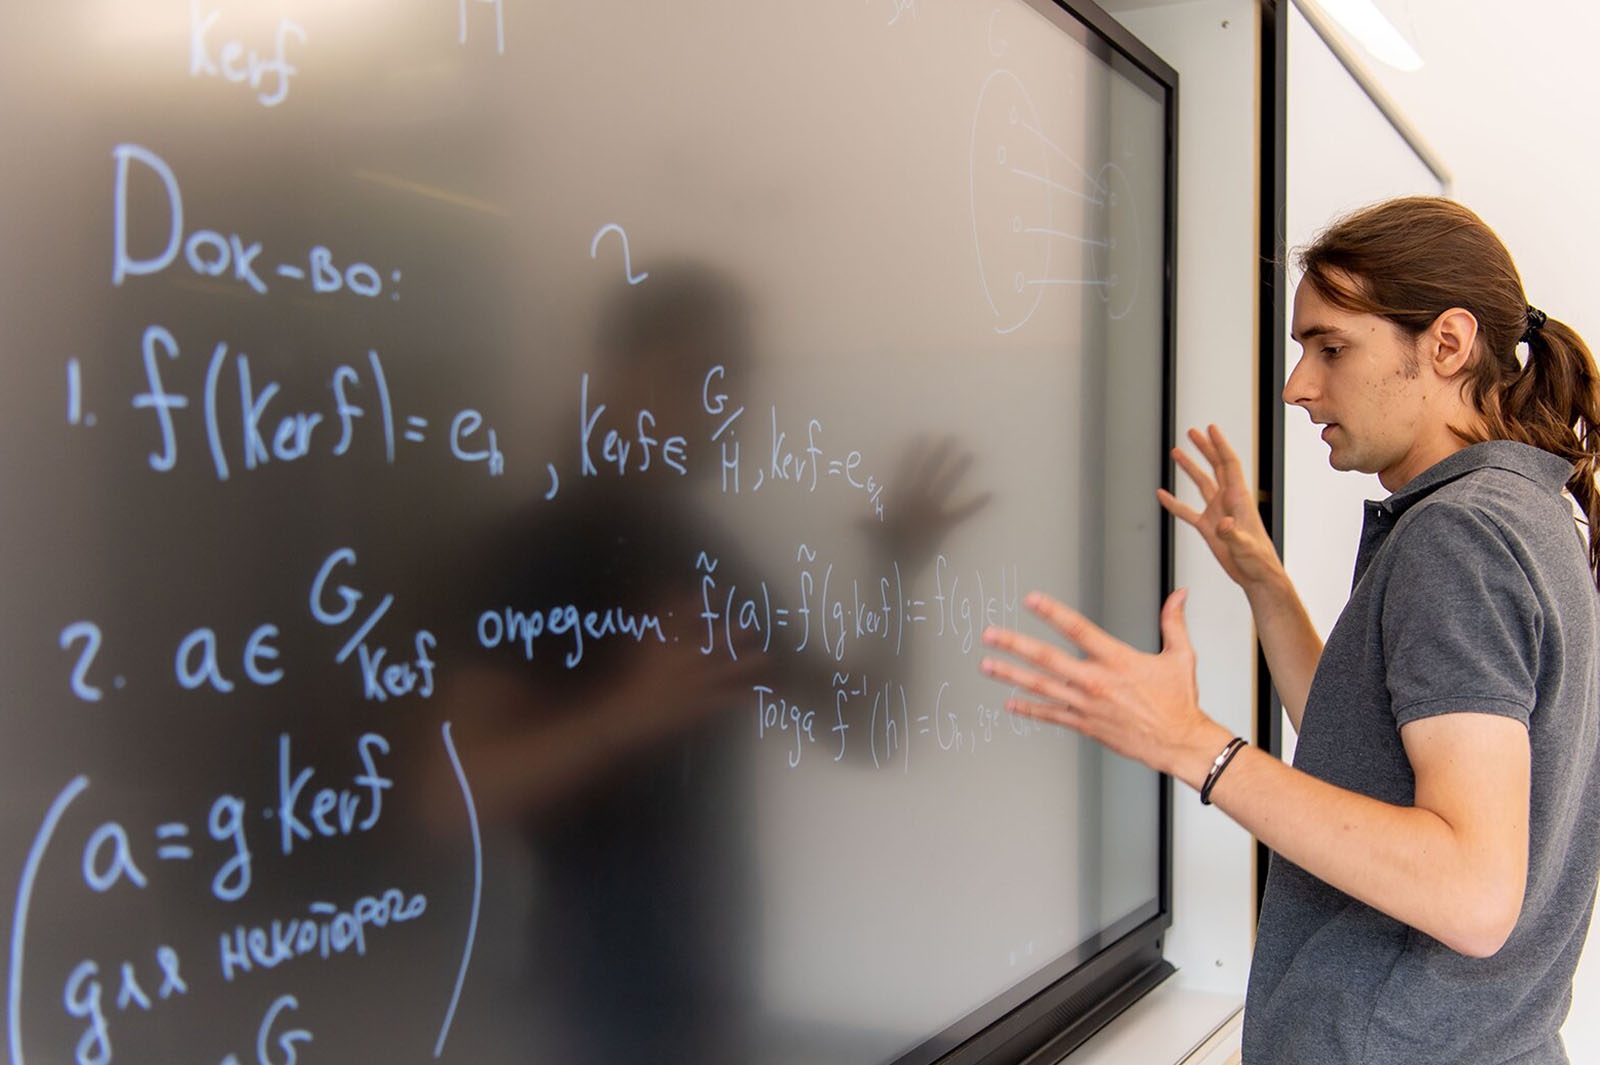 Kerf
H
G
Док-во:
1. f(Kerf) = eₕ, Kerf ∈ G/H, Kerf = e_{G/H}
2. a ∈ G/Kerf определим: f̃(a) = f̃(g·Kerf) := f(g) ∈ H
Тогда f̃⁻¹(h) = Gₕ, где
(a = g·Kerf
для некоторого
G)